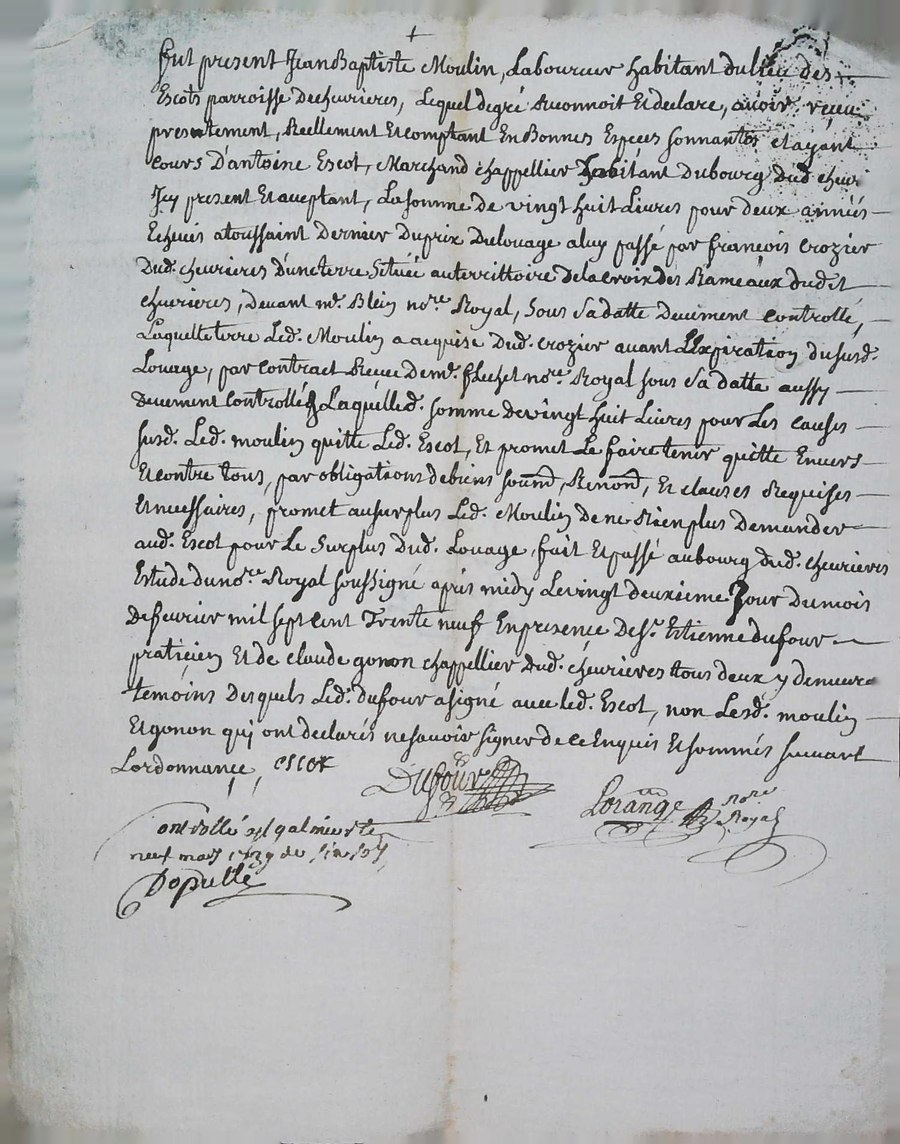 +
fut present Jean Baptiste Moulin, Laboureur habitant du lieu des
Escots parroisse de chevrieres, Lequel de gré Reconnoit Et declare, avoir reçeu
presentement, Reellement Et comptant En Bonnes Especes sonnantes et ayant
cours D'antoine Escot, Marchand chappellier habitant Dubourg dud. chevri
Icy present Et aceptant, La somme de vingt huit Livres pour deux années
Echeües a toussaint Dernier Du prix Du louage a luy passé par françois Crozier
Dud. chevrieres D'une terre Située au territtoire de la croix des Rameaux dudit
chevrieres, Devant me. Blein nore. Royal, Sous Sa datte Deüment controllé,
Laquelle terre Led. Moulin a acquise Dud. crozier avant L'Expiration du susd.
Louage, par contract Receu de me. nore. Royal sous Sa datte aussy
Deuement controllé Laquelled. somme de vingt huit Livres pour Les causes
susd. Led. moulin quitte Led. Escot, Et promet Le faire tenir quitte Envers
Et contre tous, par obligations de biens soumd. Renond. Et clauses Requises
Et necessaires, promet au surplus Led. Moulin de ne Rien plus Demander
aud. Escot pour Le Surplus Dud. Louage, fait Et passé au bourg dud. chevrieres
Estude du nore. Royal soussigné apres midy Le vingt deuxieme Jour Du mois
De fevrier mil sept cent Trente neuf En presence De Sr. Estienne dufour
praticien Et de claude gonon chappellier Dud. chevrieres tous deux y demeure
temoins Desquels Led. dufour a signé avec led. Escot, non Lesd. moulin
Et gonon qui ont declarés ne savoir signer de ce Enquis Et sommés suivant
Lordonnance, escot
Dufour
Lorange nore Royal
Controllé a St galmier le
neuf mars 1739
Dopullé